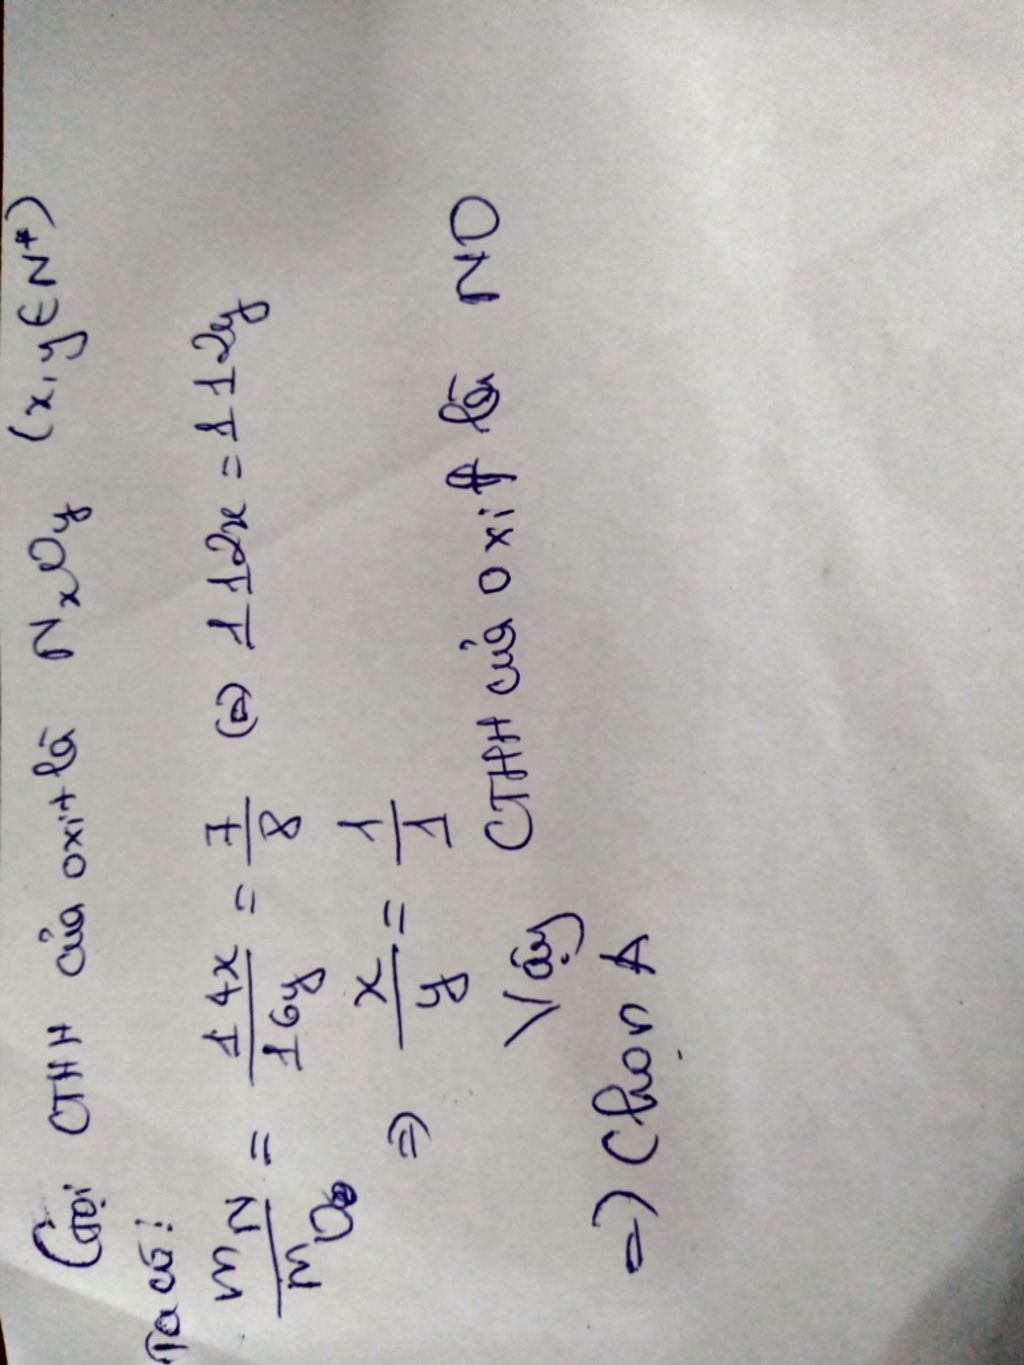 Gọi CTHH của oxit là NxOy (x, y ∈ N*)
Ta có:
mN/mO = 14x/16y = 7/8 ⇔ 112x = 112y
⇒ x/y = 1/1
Vậy CTHH của oxit là NO
⇒ Chọn A